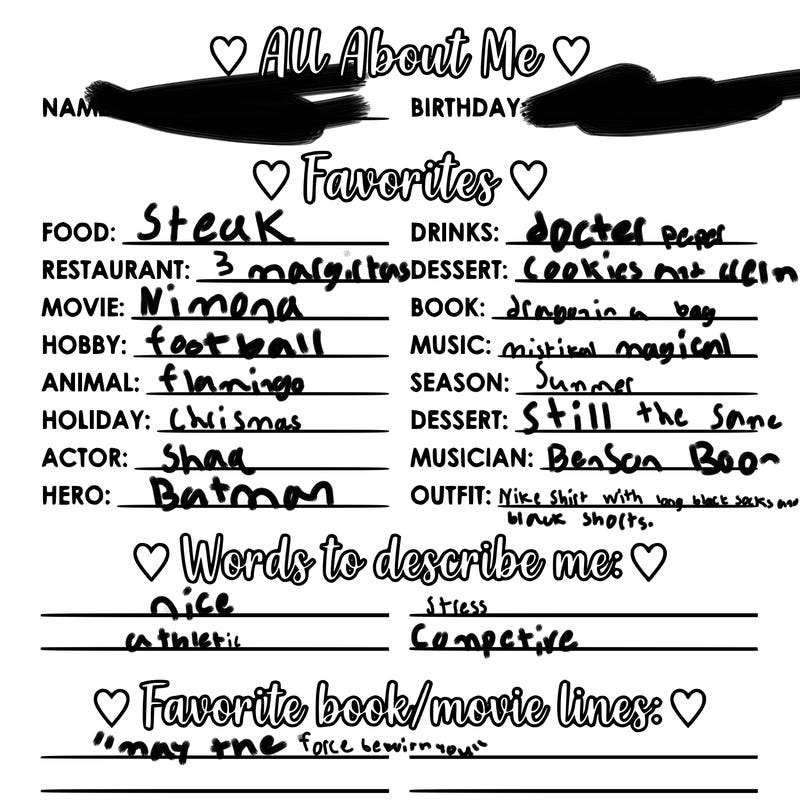 All About Me
NAME BIRTHDAY:
Favorites
FOOD: Steak DRINKS: docter peper
RESTAURANT: 3 margirtas DESSERT: Cookies and crem
MOVIE: Nimona BOOK: dragon in a bag
HOBBY: football MUSIC: mistikal magical
ANIMAL: flamingo SEASON: Summer
HOLIDAY: Chrismas DESSERT: Still the Same
ACTOR: Shaq MUSICIAN: BenSon Boon
HERO: Batman OUTFIT: Nike Shirt with long black socks and
black shorts.
Words to describe me:
nice stress
athletic Competive
Favorite book/movie lines:
"may the force be with you"